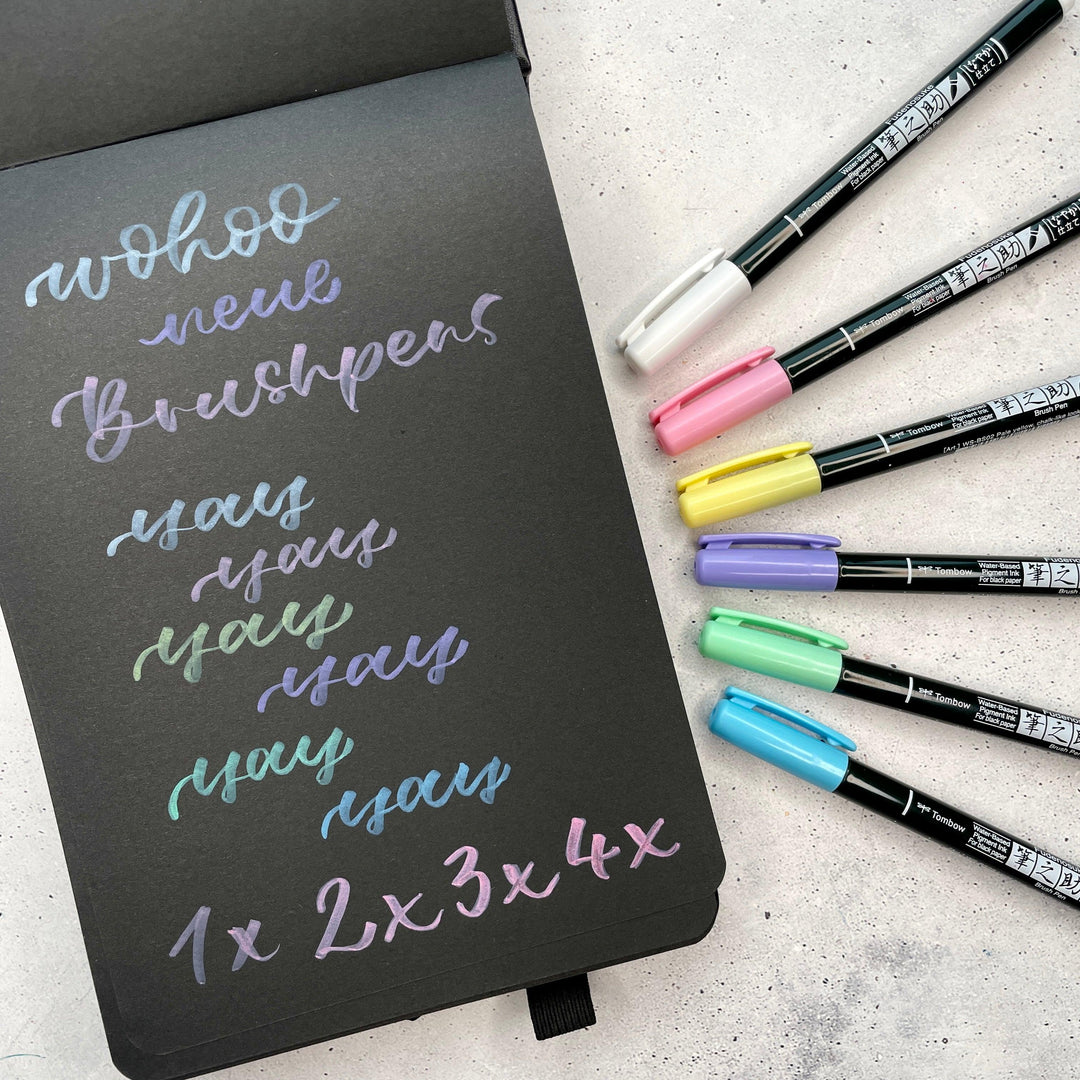 wohoo
neue
Brushpens
yay
yay
yay
yay
yay
yay
1x 2x 3x 4x
Tombow
Water-Based
Pigment Ink
For black paper
Fudenosuke
筆之助
Brush Pen
しなやか
仕立て
Tombow
Water-Based
Pigment Ink
For black paper
Fudenosuke
筆之助
Brush Pen
しなやか
仕立て
Tombow
Water-Based
Pigment Ink
For black paper
筆之助
Brush Pen
[Art.] WS-BS02 Pale yellow, chalk-like
Tombow
Water-Based
Pigment Ink
For black paper
筆之
Brush
Tombow
Water-Based
Pigment Ink
For black paper
筆之助
Brush Pen
Tombow
Water-Based
Pigment Ink
For black paper
筆之助
Brush Pen